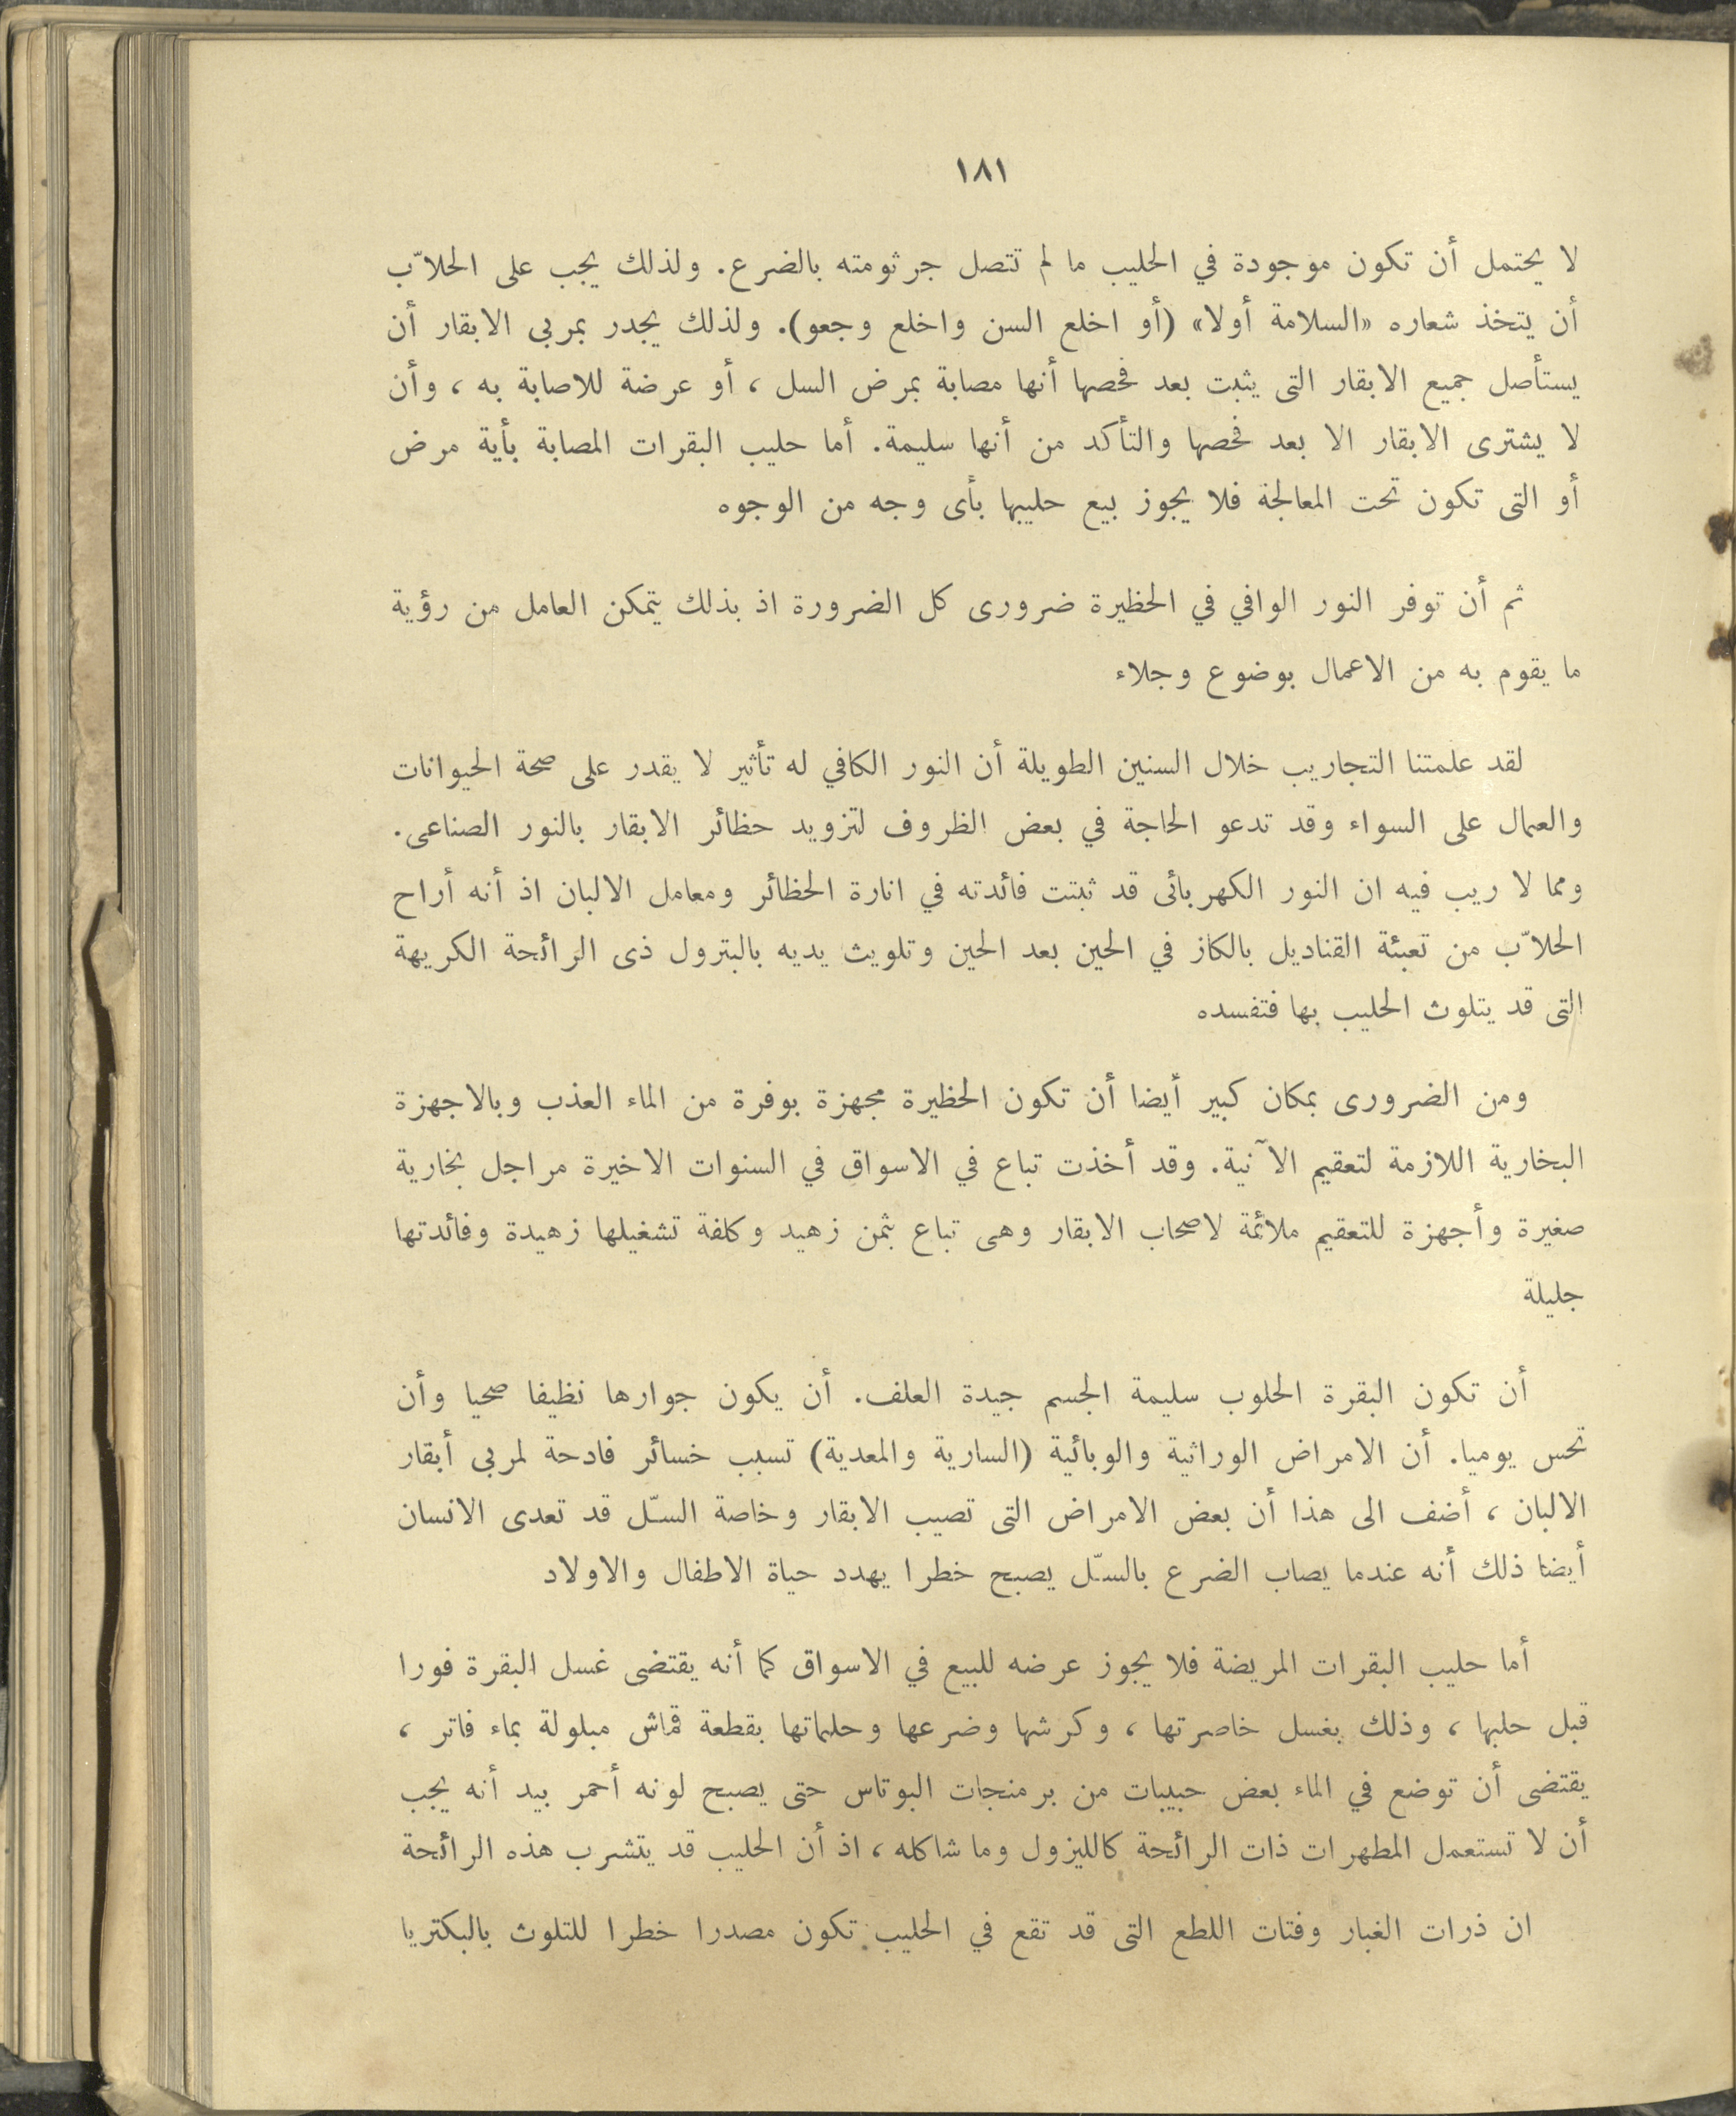 ١٨١
لا يحتمل أن تكون موجودة في الحليب ما لم تتصل جرثومته بالضرع. ولذلك يجب على الحلاّب
أن يتخذ شعاره «السلامة أولا» (أو اخلع السن واخلع وجعو). ولذلك يجدر بمربى الابقار أن
يستأصل جميع الابقار التى يثبت بعد فحصها أنها مصابة بمرض السل ، أو عرضة للاصابة به ، وأن
لا يشترى الابقار الا بعد فحصها والتأكد من أنها سليمة. أما حليب البقرات المصابة بأية مرض
أو التى تكون تحت المعالجة فلا يجوز بيع حليبها بأى وجه من الوجوه
ثم أن توفر النور الوافي في الحظيرة ضرورى كل الضرورة اذ بذلك يتمكن العامل من رؤية
ما يقوم به من الاعمال بوضوع وجلاء
لقد علمتنا التجاريب خلال السنين الطويلة أن النور الكافي له تأثير لا يقدر على صحة الحيوانات
والعمال على السواء وقد تدعو الحاجة في بعض الظروف لتزويد حظائر الابقار بالنور الصناعى.
ومما لا ريب فيه ان النور الكهربائى قد ثبتت فائدته في انارة الحظائر ومعامل الالبان اذ أنه أراح
الحلاّب من تعبئة القناديل بالكاز في الحين بعد الحين وتلويث يديه بالبترول ذى الرائحة الكريهة
التى قد يتلوث الحليب بها فتفسده
ومن الضرورى بمكان كبير أيضا أن تكون الحظيرة مجهزة بوفرة من الماء العذب وبالاجهزة
البخارية اللازمة لتعقيم الآنية. وقد أخذت تباع في الاسواق في السنوات الاخيرة مراجل بخارية
صغيرة وأجهزة للتعقيم ملائمة لاصحاب الابقار وهى تباع بثمن زهيد وكلفة تشغيلها زهيدة وفائدتها
جليلة
أن تكون البقرة الحلوب سليمة الجسم جيدة العلف. أن يكون جوارها نظيفا صحيا وأن
تحس يوميا. أن الامراض الوراثية والوبائية (السارية والمعدية) تسبب خسائر فادحة لمربى أبقار
الالبان ، أضف الى هذا أن بعض الامراض التى تصيب الابقار وخاصة السّل قد تعدى الانسان
أيضا ذلك أنه عندما يصاب الضرع بالسّل يصبح خطرا يهدد حياة الاطفال والاولاد
أما حليب البقرات المريضة فلا يجوز عرضه للبيع في الاسواق كما أنه يقتضى غسل البقرة فورا
قبل حلبها ، وذلك بغسل خاصرتها ، وكرشها وضرعها وحلماتها بقطعة قماش مبلولة بماء فاتر ،
يقتضى أن توضع في الماء بعض حبيبات من برمنجات البوتاس حتى يصبح لونه أحمر بيد أنه يجب
أن لا تستعمل المطهرات ذات الرائحة كالليزول وما شاكله ، اذ أن الحليب قد يتشرب هذه الرائحة
ان ذرات الغبار وفتات اللطع التى قد تقع في الحليب تكون مصدرا خطرا للتلوث بالبكتريا